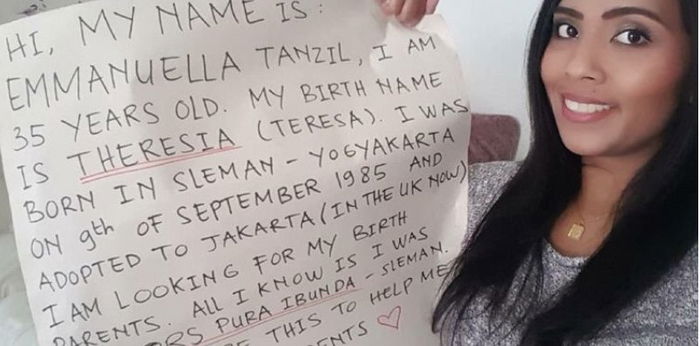 HI, MY NAME IS:
EMMANUELLA TANZIL, I AM
35 YEARS OLD. MY BIRTH NAME
IS THERESIA (TERESA). I WAS
BORN IN SLEMAN - YOGYAKARTA
ON 9th OF SEPTEMBER 1985 AND
ADOPTED TO JAKARTA (IN THE UK NOW)
I AM LOOKING FOR MY BIRTH
PARENTS. ALL I KNOW IS I WAS
PURA IBUNDA - SLEMAN.
THIS TO HELP ME